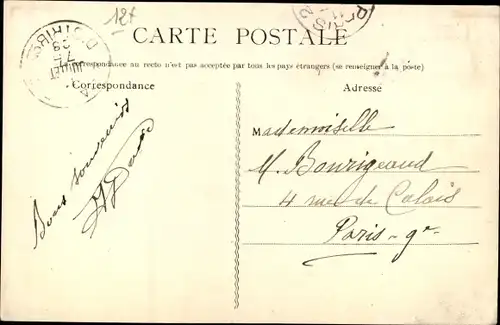 12f
CARTE POSTALE
Correspondance au recto n'est pas acceptée par tous les pays étrangers (se renseigner à la poste)
Correspondance
Adresse
Bons souvenirs
Mademoiselle
M. Bourigeaud
4 rue de Calais
Paris - 9e